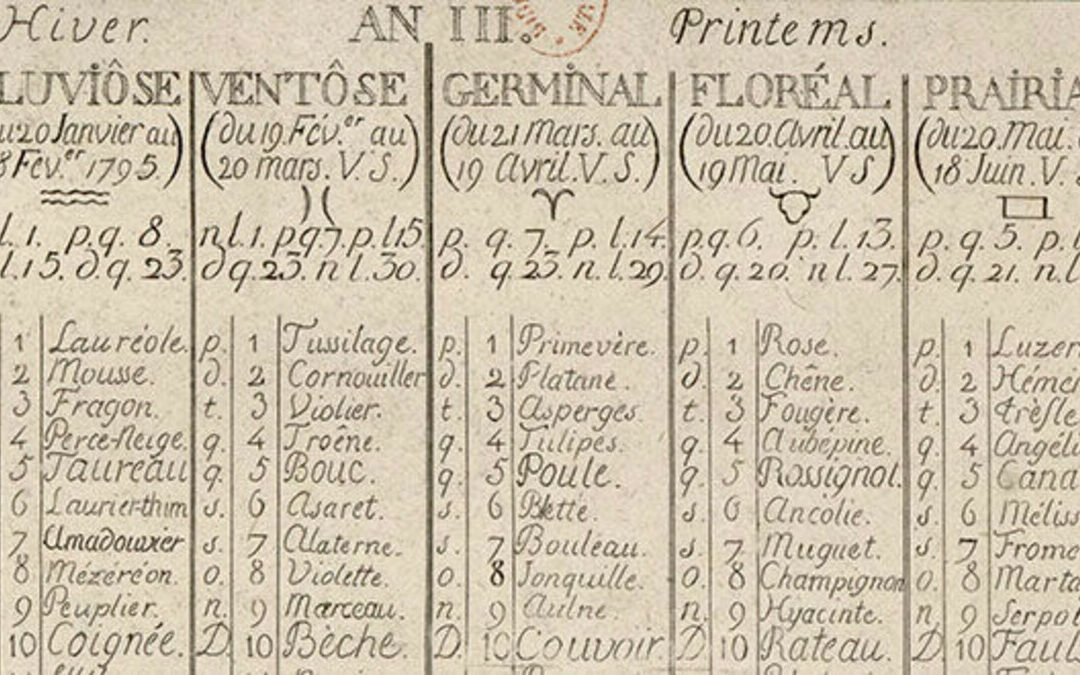 Hiver. AN III. Printems.
LUVIÔSE VENTÔSE GERMINAL FLORÉAL PRAIRIA
(du 19. Fév.er au (du 21 mars. au (du 20. Avril. au (du 20. Mai.
Fév.er 1795.) 20 mars. V. S.) 19 Avril. V. S.) 19 Mai. V S) 18 Juin. V.
l. 1. p. q. 8. n l. 1. p q 7. p. l 15. p. q. 7. p. l. 14. p. q. 6. p. l. 13. p. q. 5. p.
l. 15. d. q. 23. d q. 23. n l. 30. d. q. 23. n. l. 29. d. q. 20. n l. 27. d. q. 21. n.
1 Lauréole. p. 1 Tussilage. p. 1 Primevère. p. 1 Rose. p. 1 Luzer
2 Mousse. d. 2 Cornouiller d. 2 Platane. d. 2 Chêne. d. 2 Hémér
3 Fragon. t. 3 Violier. t. 3 Asperges. t. 3 Fougère. t. 3 Trèfle
4 Perce-Neige. q. 4 Troêne. q. 4 Tulipes. q. 4 Aubépine. q. 4 Angéli
5 Taureau q. 5 Bouc. q. 5 Poule. q. 5 Rossignol. q. 5 Cana
6 Laurier-thim s. 6 Asaret. s. 6 Blette. s. 6 Ancolie. s. 6 Méliss
7 Amadouvier s. 7 Alaterne. s. 7 Bouleau. s. 7 Muguet. s. 7 Frome
8 Mézéréon. o. 8 Violette. o. 8 Jonquille. o. 8 Champignon o. 8 Marta
9 Peuplier. n. 9 Marceau. n. 9 Aulne. n. 9 Hyacinte. n. 9 Serpol
10 Coignée. D. 10 Bèche. D. 10 Couvoir. D. 10 Rateau. D. 10 Faul